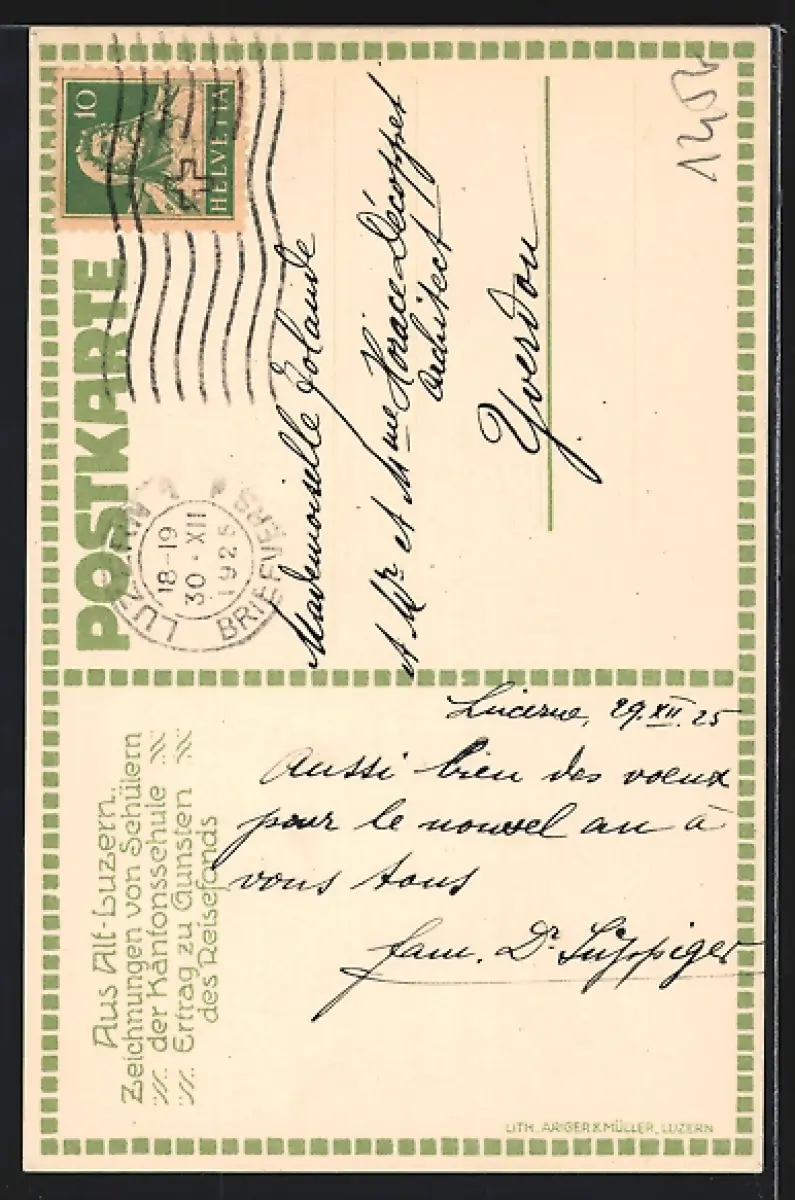 POSTKARTE
10
HELVETIA
LUZERN
18-19
30·XII
1925
BRIEFVERS
Mademoiselle Yolande
et Mr et Mme Horace Décoppet
architect
Yverdon
Aus Alt-Luzern..
Zeichnungen von Schülern
der Kantonsschule
Ertrag zu Gunsten
des Reisefonds
Lucerne, 29.XII.25
Aussi bien des voeux
pour le nouvel an à
vous tous
fam. Dr Süppiger
LITH. ARIGER & MÜLLER, LUZERN